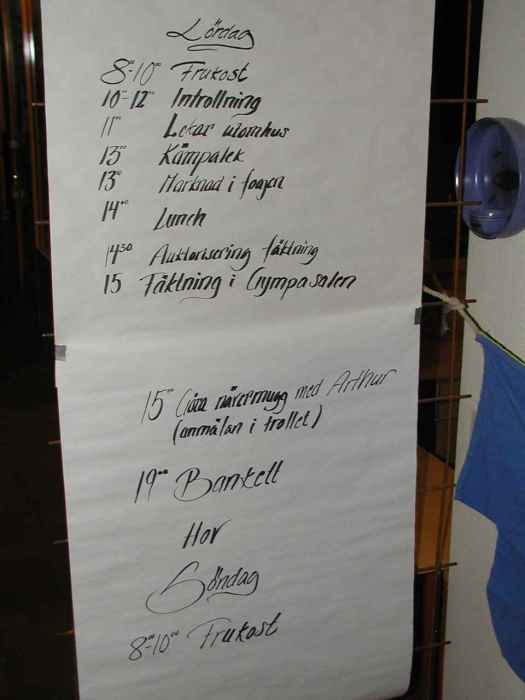 Lördag
8⁰⁰-10⁰⁰ Frukost
10⁰⁰-12⁰⁰ Introllning
11⁰⁰ Lekar utomhus
13⁰⁰ Kämpalek
13⁰⁰ Marknad i foajen
14⁰⁰ Lunch
14³⁰ Auktorisering fäktning
15 Fäktning i Gympasalen
15⁰⁰ Göra nävermugg med Arthur
(anmälan i trollet)
19⁰⁰ Bankett
Hov
Söndag
8⁰⁰-10⁰⁰ Frukost